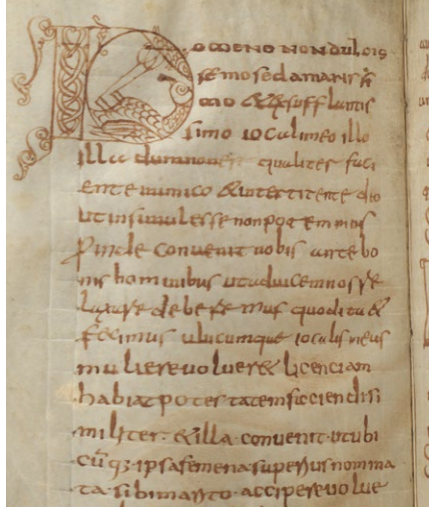 DOMENO NON DULCIS
semo sed amarisse
mo & exsufflantis
simo iocali meo illo
illa dum non est qualiter faci
ente inimico & interticente dio
ut insimul esse non potemmus
Proinde convenit nobis ante bo
nis hominibus ut advicem nos re
laxare deberemus quod ita &
fecimus ubicumque iocalis meus
muliere voluer& licenciam
habiat potestatem faciendi si
militer· & illa convenit· ut ubi
cūq; ipsa femena superius nomina
ta· sibi marito· accipere volue